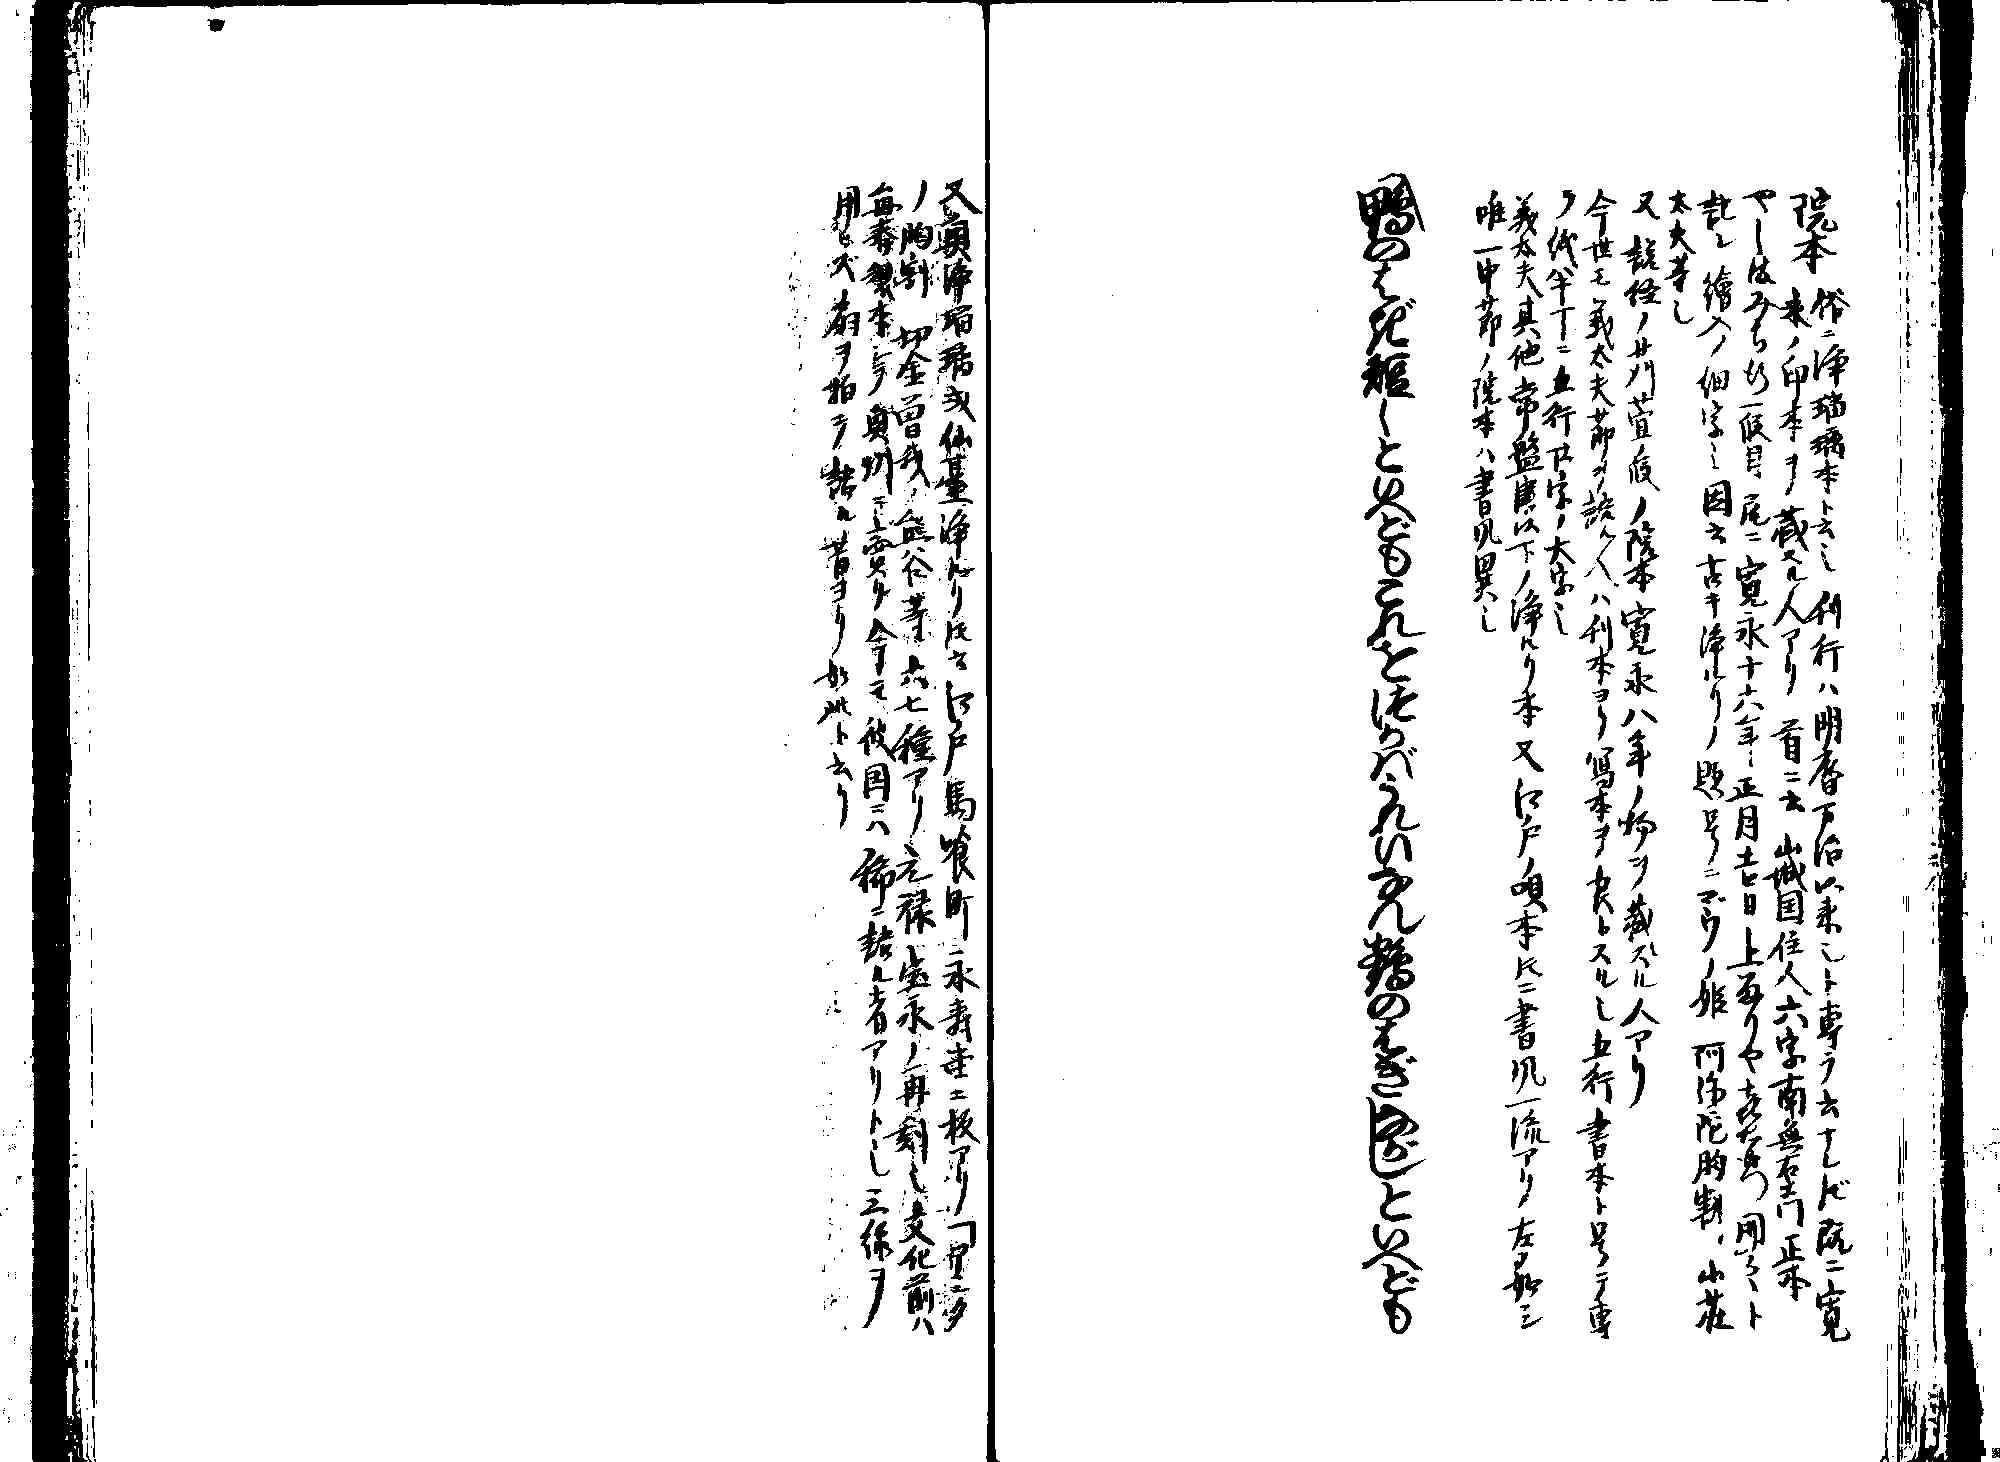 院本 俗ニ浄瑠璃本ト云也 刊行ハ明暦万治以来也ト専ラ云ナレドモ既ニ寛
永ノ印本ヲ蔵スル人アリ 首ニ云 山城国住人六字南無右エ門正本
やしまみちゆき 尾ニ寛永十六年正月吉日 上るりや喜右衛門開之ト
記シ繪入ノ細字也 因云古キ浄ルリノ題号ニ ノ姫 阿弥陀胸割 小荘
太夫等也
又 説経ノ苅萱 ノ院本寛永八年ノ物ヲ蔵スル人アリ
今世モ義太夫節ヲ語ル人ハ刊本ヨリ写本ヲ良トスル也 五行書本ト号テ専
ラ紙半丁ニ五行 字ノ大字也
義太夫其他常盤津以下ノ浄ルリ本又江戸ノ唄本トモニ書風一流アリ 左ノ如シ
唯一中節ノ院本ハ書風異也
鴨のはぎ短しといへどもこれをつがばうれいなん鶴のはぎながしといへども
又奥浄瑠璃或仙臺浄ルリトモ云 江戸馬喰町ニ永寿堂ニ板アリ
ノ胸割 切金曽我 熊谷等六七種アリ 元禄宝永ノ再刻也 文化前ハ
毎春製本シテ奥州ニ売リ 今モ彼国ニハ稀ニ語ル者アリト也 三絃ヲ
用ヒズ扇ヲ拍テ語ル 昔ヨリ如此ト云リ